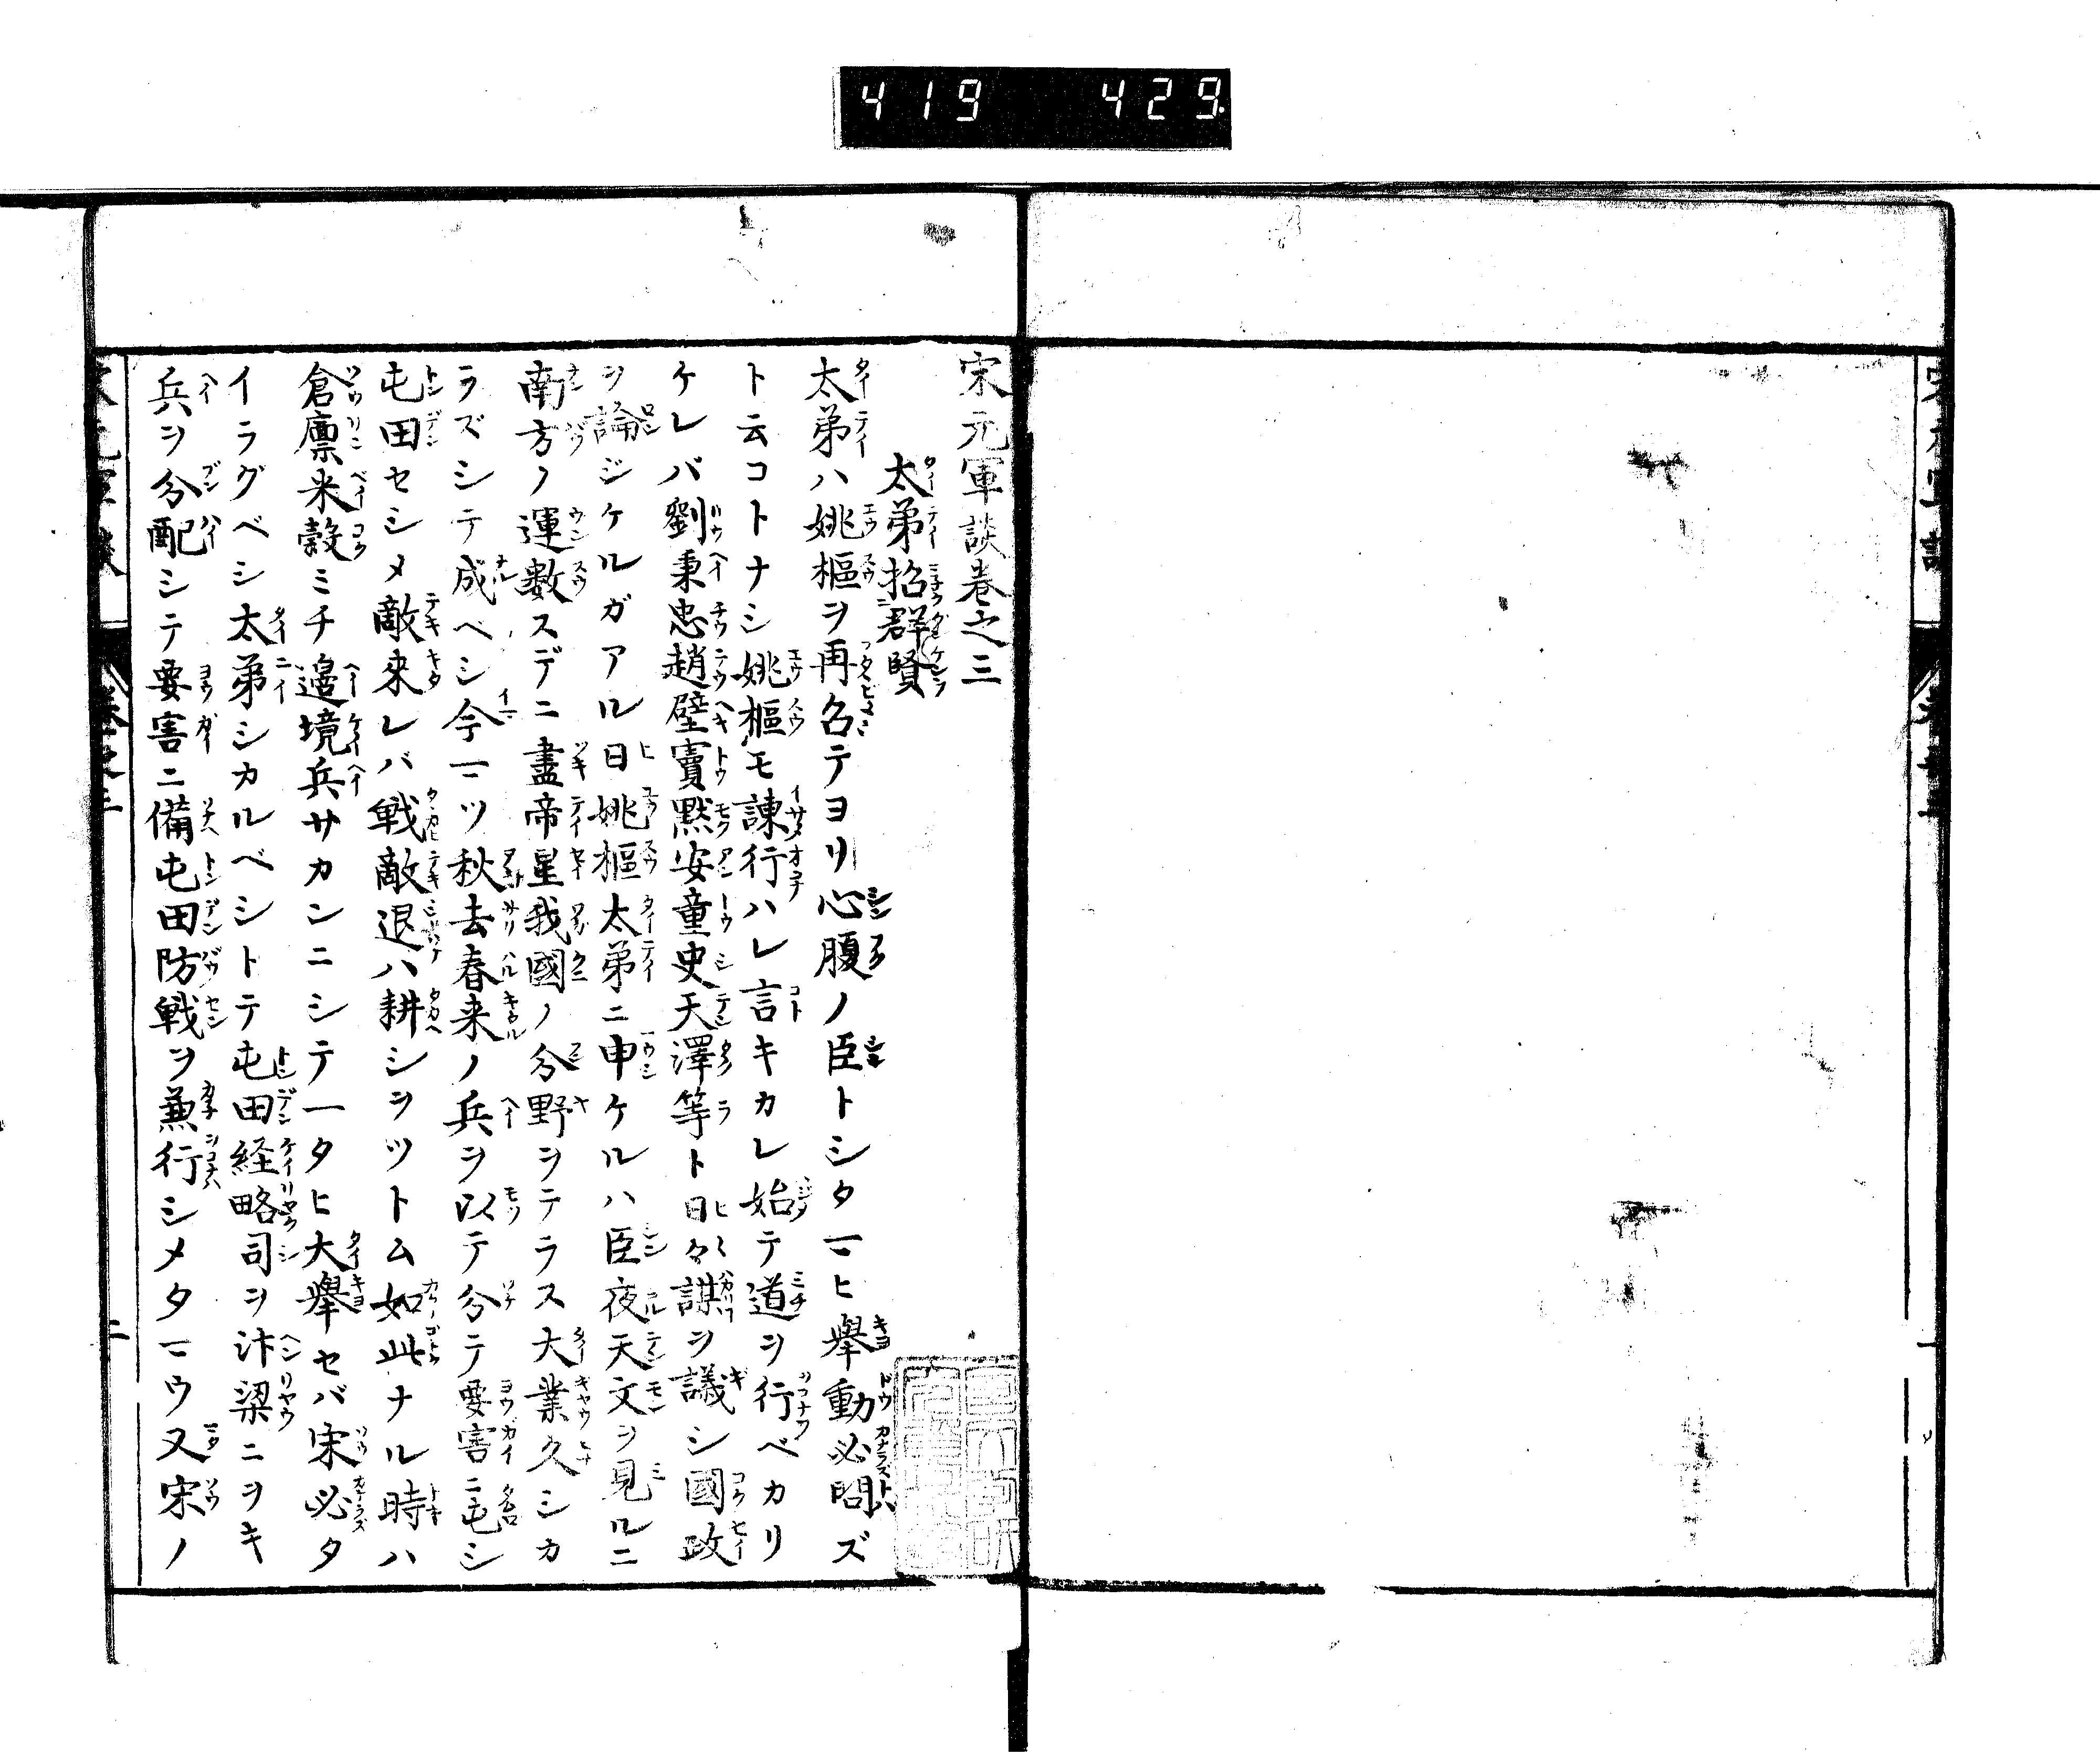 419 429
宋元軍談巻之三
太弟招群賢
太弟ハ姚樞ヲ再召テヨリ心腹ノ臣トシタマヒ擧動必問ズ
ト云コトナシ姚樞モ諫行ハレ言キカレ始テ道ヲ行ベカリ
ケレバ劉秉忠趙壁竇黙安童史天澤等ト日々謀ヲ議シ國政
ヲ論ジケルガアル日姚樞太弟ニ申ケルハ臣夜天文ヲ見ルニ
南方ノ運數スデニ盡帝星我國ノ分野ヲテラス大業久シカ
ラズシテ成ベシ今一ツ秋去春来ノ兵ヲ以テ分テ要害ニ屯シ
屯田セシメ敵来レバ戦敵退ハ耕シヲツトム如此ナル時ハ
倉廪米穀ミチ邉境兵サカンニシテ一タヒ大擧セバ宋必タ
イラグベシ太弟シカルベシトテ屯田経略司ヲ汴梁ニヲキ
兵ヲ分配シテ要害ニ備屯田防戦ヲ兼行シメタマウ又宋ノ
巻之三
二